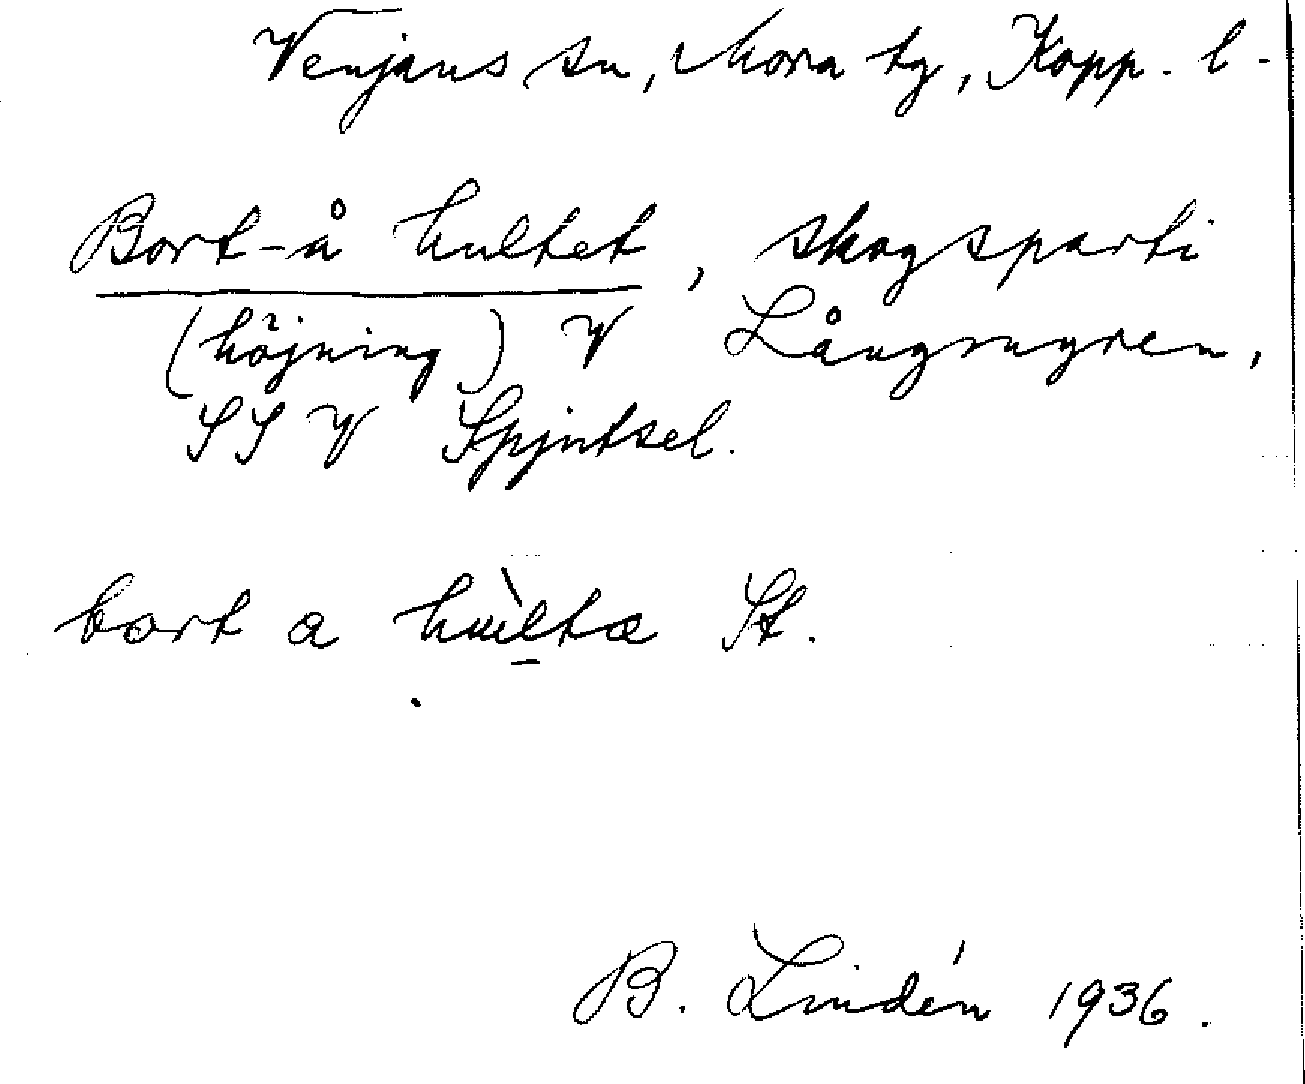 Venjans sn, Mora tg, Kopp. l.
Bort-å hultet, skogsparti
(höjning) V Långmyren,
SSV Spjutsel.
bort a hùltæ St.
B. Lindén 1936.